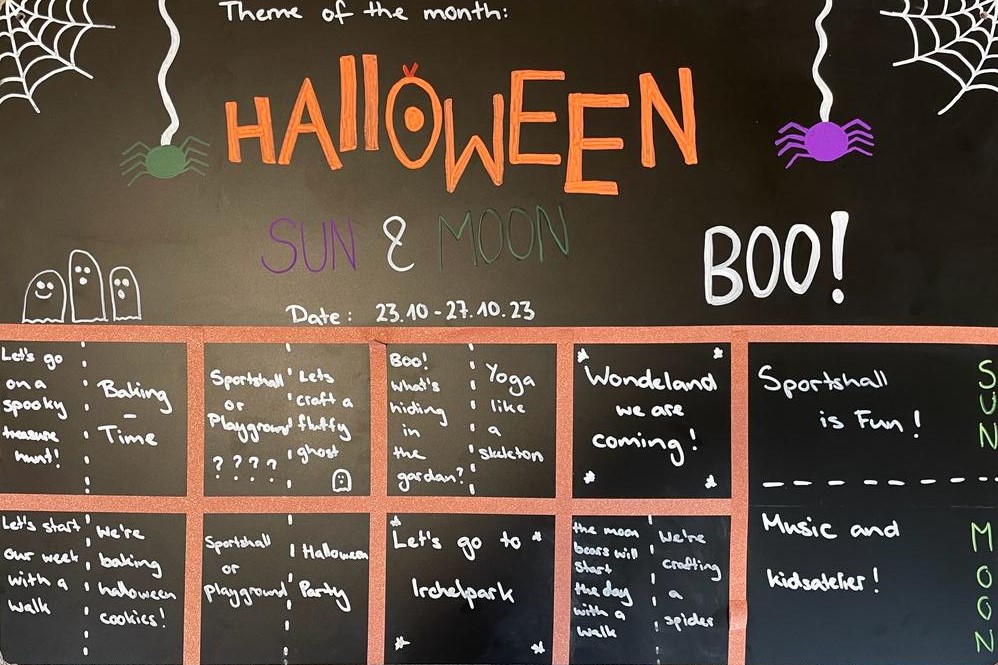 Theme of the month:
HAllOWEEN
SUN & MOON
BOO!
Date: 23.10 - 27.10.23
Let's go
on a
spooky
treasure
hunt!
Baking
-
Time
Sportshall
or
Playground
? ? ? ?
Lets
craft a
fluffy
ghost
Boo!
What's
hiding
in
the
gardan?
Yoga
like
a
skeleton
Wondeland
we are
coming!
Sportshall
is Fun!
SUN
Let's start
our week
with a
walk
We're
baking
halloween
cookies!
Sportshall
or
playground
Halloween
Party
Let's go to
Irchelpark
the moon
bears will
start
the day
with a
walk
We're
crafting
a
spider
Music and
kidsatelier!
MOON